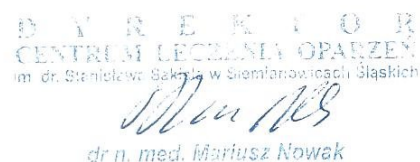 DYREKTOR
CENTRUM LECZENIA OPARZEŃ
im. dr. Stanisława Sakiela w Siemianowicach Śląskich
dr n. med. Mariusz Nowak